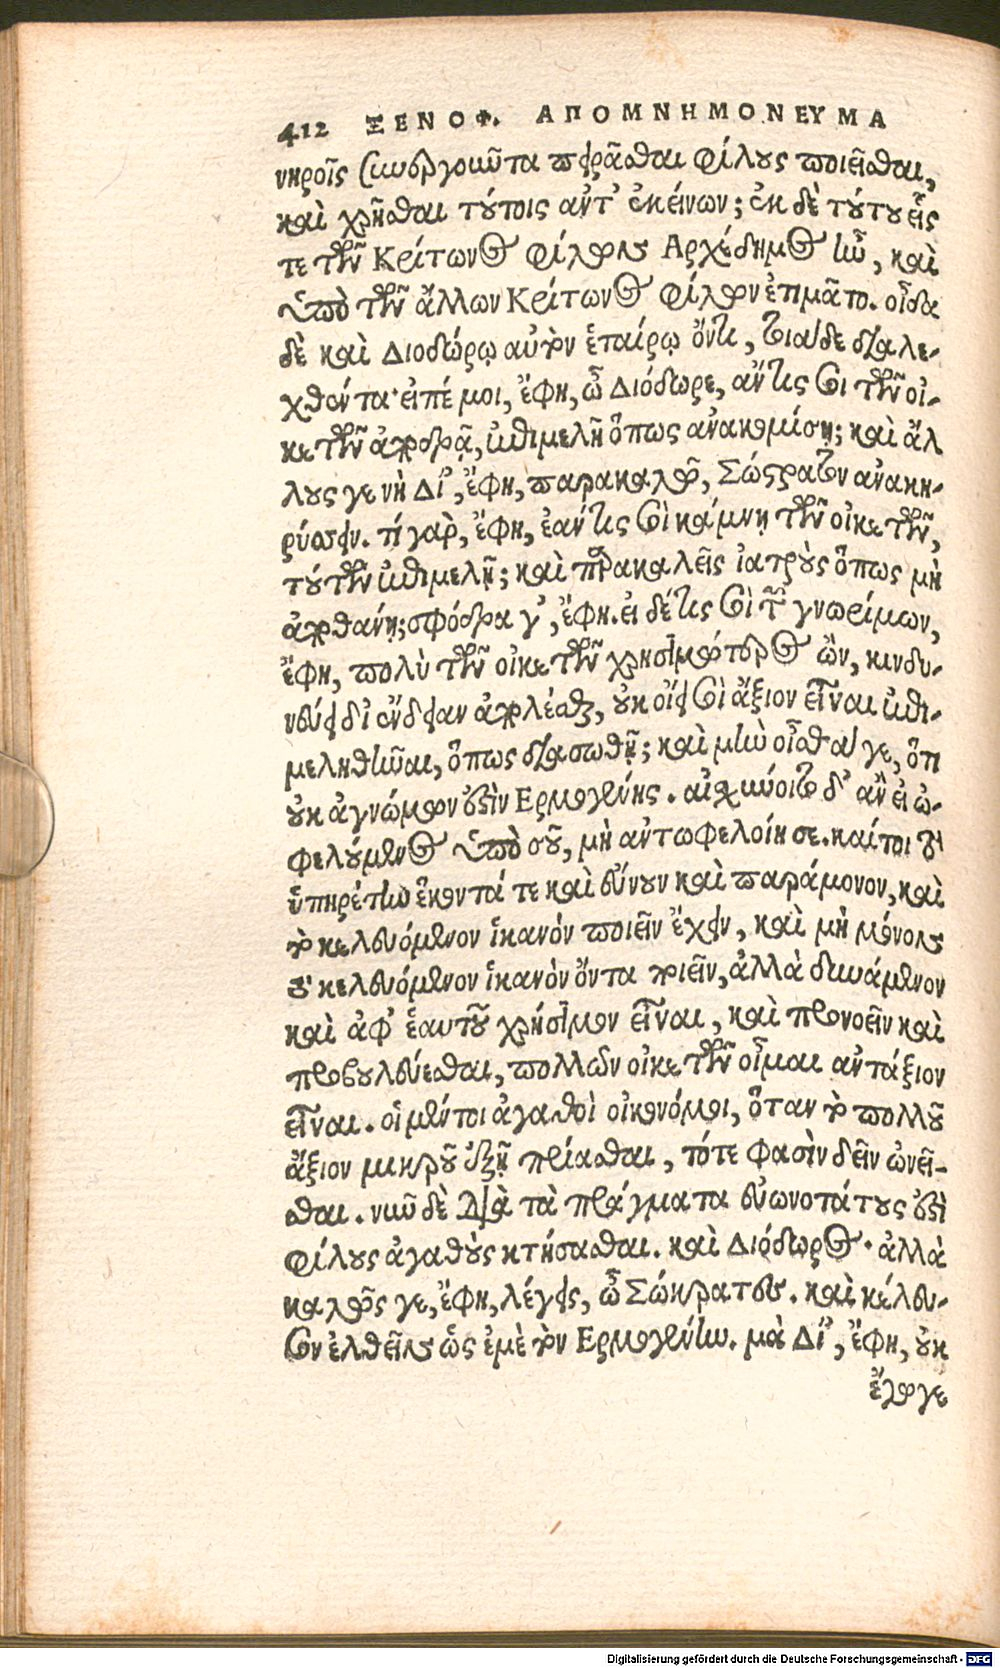 412 ΞΕΝΟΦ. ΑΠΟΜΝΗΜΟΝΕΥΜΑ
νηροῖς συνεργοῦντα πειρᾶσθαι φίλους ποιεῖσθαι,
καὶ χρῆσθαι τούτοις ἀντ' ἐκείνων; ἐκ δὲ τούτου εἷς
τε τῶν Κρίτωνος φίλων Ἀρχέδημος ἦν, καὶ
ὑπὸ τῶν ἄλλων Κρίτωνος φίλων ἐτιμᾶτο. οἶδα
δὲ καὶ Διοδώρῳ αὐτὸν ἑταίρῳ ὄντι, τοιάδε διαλε-
χθέντα· εἰπέ μοι, ἔφη, ὦ Διόδωρε, ἄν τίς σοι τῶν οἰ-
κετῶν ἀποδρᾷ, ἐπιμελῇ ὅπως ἀνακομίσῃ; καὶ ἄλ
λους γε νὴ Δί', ἔφη, παρακαλῶ, Σῶστρα τούτου ἀνακη-
ρύσσων. τί γὰρ, ἔφη, ἐάν τίς σοι κάμνῃ τῶν οἰκετῶν,
τούτων ἐπιμελῇ; καὶ παρακαλεῖς ἰατροὺς ὅπως μὴ
ἀποθάνῃ; σφόδρα γ', ἔφη. εἰ δέ τίς σοι τῶν γνωρίμων,
ἔφη, πολὺ τῶν οἰκετῶν χρησιμώτερος ὢν, κινδυ-
νεύει δι' ἔνδειαν ἀπολέσθαι, οὐκ οἴει σοι ἄξιον εἶναι ἐπι-
μεληθῆναι, ὅπως διασωθῇ; καὶ μὴν οἶσθά γε, ὅτι
οὐκ ἀγνώμων ἐστὶν Ἑρμογένης. αἰσχύνοιτο δ' ἂν εἰ ὠ-
φελούμενος ὑπὸ σοῦ, μὴ ἀντωφελοίη σε. καίτοι τὸ
ὑπηρέτην ἑκόντα τε καὶ εὔνουν καὶ παράμονον, καὶ
τὸ κελευόμενον ἱκανὸν ποιεῖν ἔχειν, καὶ μὴ μόνον
τὸ κελευόμενον ἱκανὸν ὄντα ποιεῖν, ἀλλὰ δυνάμενον
καὶ ἀφ' ἑαυτοῦ χρήσιμον εἶναι, καὶ προνοεῖν καὶ
προβουλεύεσθαι, πολλῶν οἰκετῶν οἶμαι ἀντάξιον
εἶναι. οἱ μέντοι ἀγαθοὶ οἰκονόμοι, ὅταν τὸ πολλοῦ
ἄξιον μικροῦ ἐξῇ πρίασθαι, τότε φασὶν δεῖν ὠνεῖ-
σθαι. νῦν δὲ διὰ τὰ πράγματα εὐωνοτάτους ἐστὶ
φίλους ἀγαθοὺς κτήσασθαι. καὶ Διόδωρος· ἀλλὰ
καλῶς γε, ἔφη, λέγεις, ὦ Σώκρατες. καὶ κέλευ-
σον ἐλθεῖν ὡς ἐμὲ τὸν Ἑρμογένην. μὰ Δί', ἔφη, οὐκ
ἔγωγε
Digitalisierung gefördert durch die Deutsche Forschungsgemeinschaft - DFG